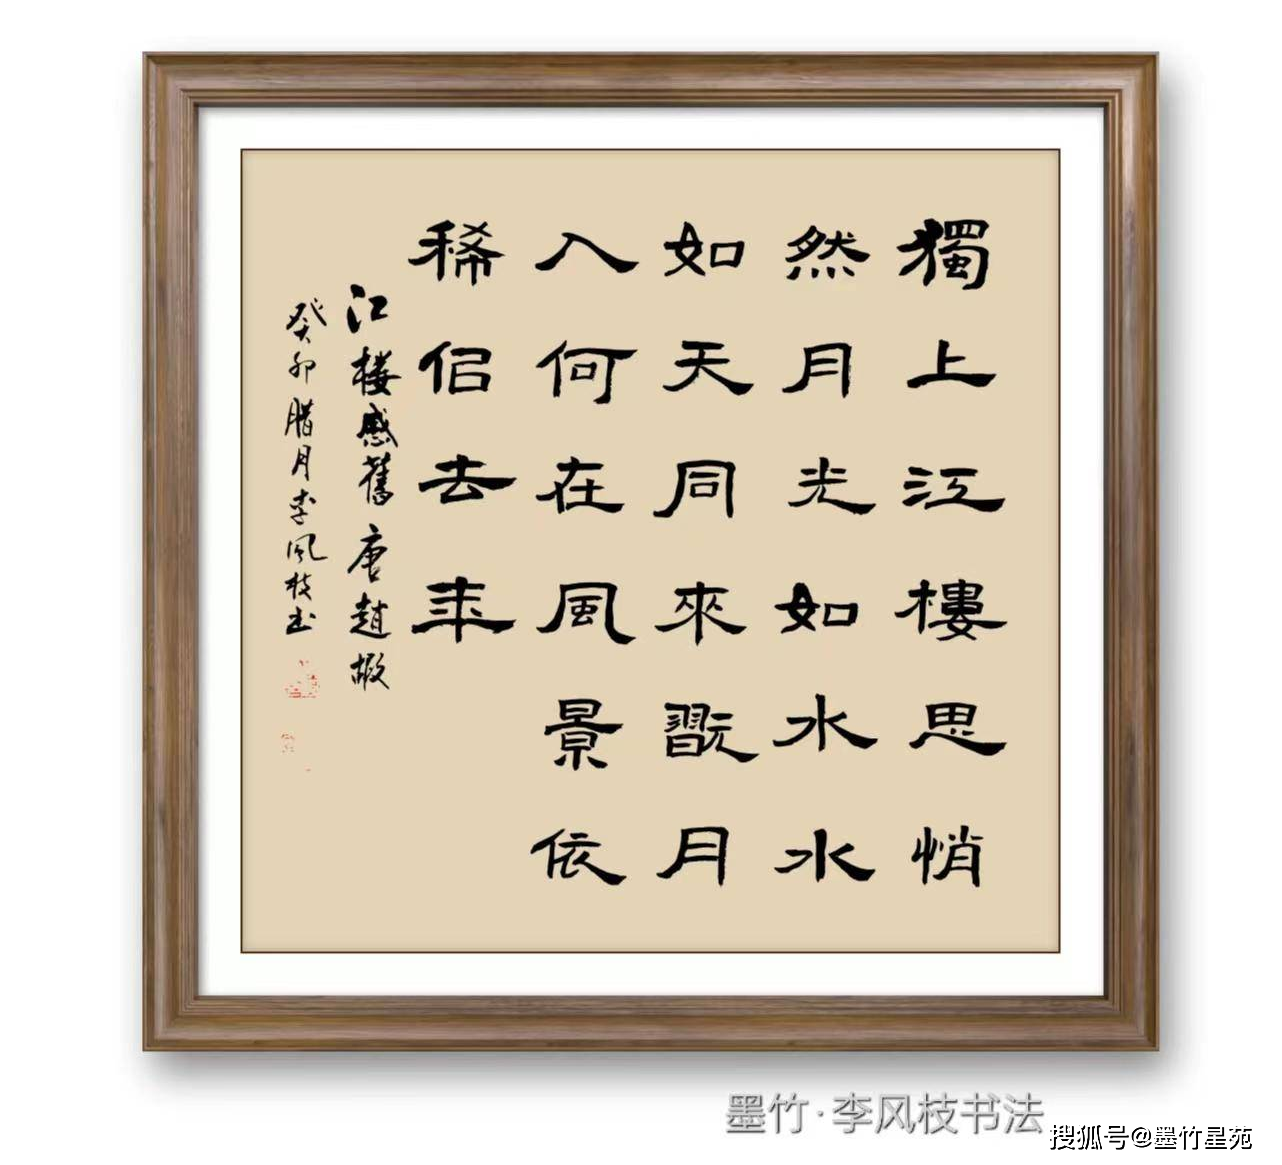 獨上江樓思悄
然月光如水水
如天同來翫月
人何在風景依
稀佀去年
江楼感舊唐趙嘏
癸卯腊月李風枝书
墨竹·李风枝书法
搜狐号@墨竹星苑